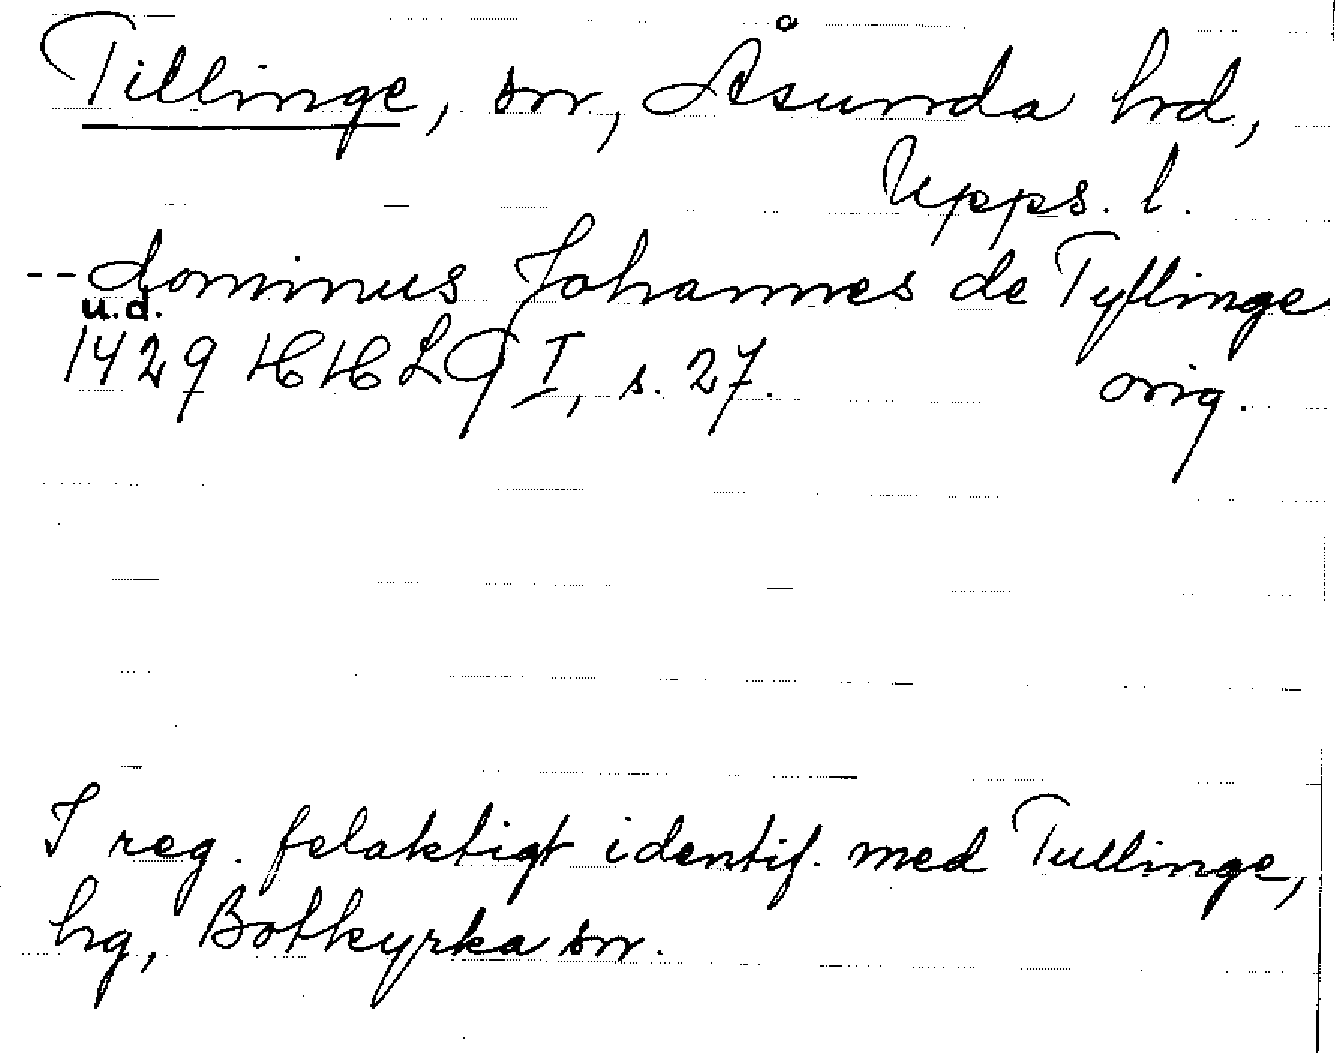 Tillinge, sn, Åsunda hd,
Upps. l.
-- dominus Johannes de Tyllinge
u.d.
1429 HHLQ I, s. 27. orig.
I reg. felaktigt identif. med Tullinge,
hg, Botkyrka sn.